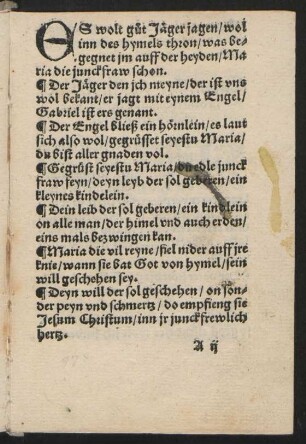 ES wolt gůt Jäger jagen/wol
inn des hymels thron/was be-
gegnet jm auff der heyden/Ma
ria die junckfraw schon.
¶ Der Jäger den jch meyne/der ist vns
wol bekant/er jagt mit eynem Engel/
Gabriel ist ers genant.
¶ Der Engel bließ ein hörnlein/es laut
sich also wol/gegrüsset seyestu Maria/
du bist aller gnaden vol.
¶ Gegrüst seyestu Maria/du edle junck
fraw feyn/deyn leyb der sol geberen/ein
kleynes kindelein.
¶ Dein leib der sol geberen/ein kindlein
on alle man/der himel vnd auch erden/
eins mals bezwingen kan.
¶ Maria die vil reyne/fiel nider auff jre
knie/wann sie bat Got von hymel/sein
will geschehen sey.
¶ Deyn will der sol geschehen/on son-
der peyn vnd schmertz/do empfieng sie
Jesum Christum/inn jr junckfrewlich
hertz.
A ij